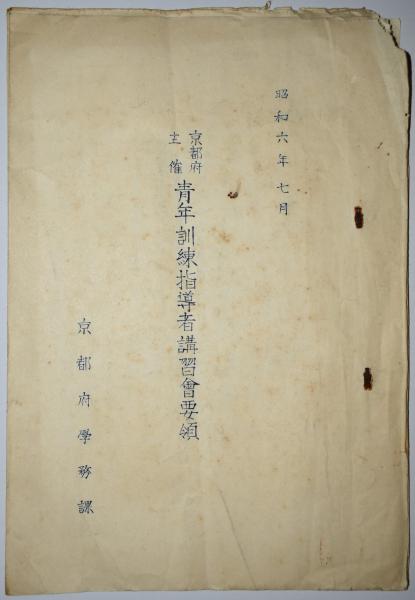 昭和六年七月
京都府
主催
青年訓練指導者講習會要領
京都府學務課